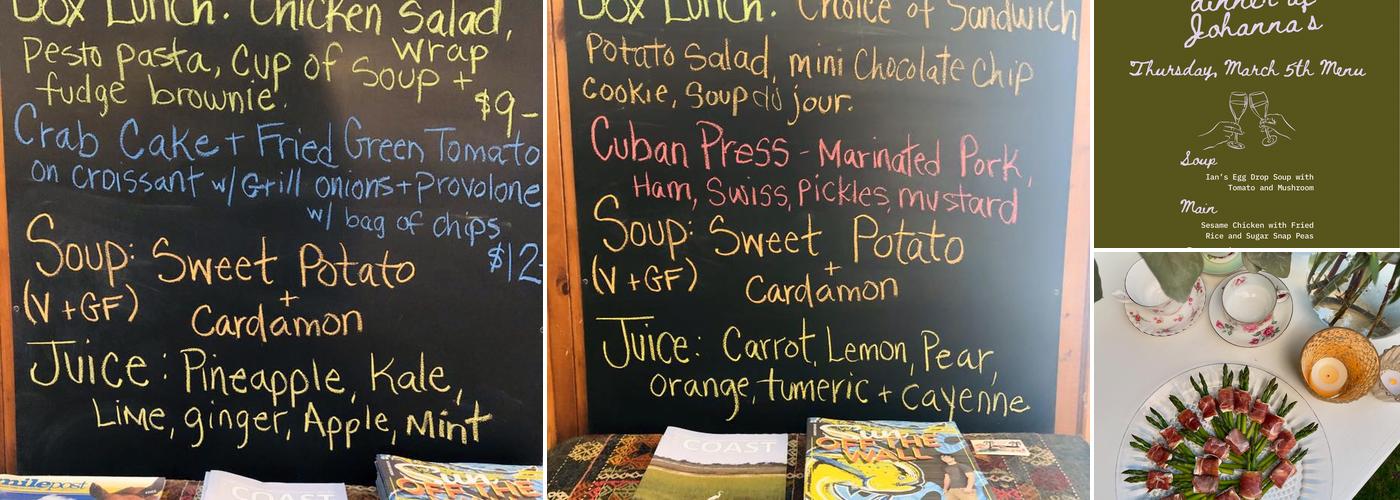 Box Lunch: Chicken Salad,
wrap
Pesto pasta, Cup of Soup +
fudge brownie.
$9-
Crab Cake + Fried Green Tomato
on croissant w/ Grill onions + Provolone
w/ bag of chips
$12-
Soup: Sweet Potato
(V + GF) +
Cardamon
Juice: Pineapple, Kale,
Lime, ginger, Apple, Mint
milepost
COAST
OFF THE
Box Lunch: Choice of Sandwich
Potato Salad, mini Chocolate Chip
Cookie, Soup du jour.
Cuban Press - Marinated Pork,
Ham, Swiss, Pickles, mustard
Soup: Sweet Potato
(V + GF) +
Cardamon
Juice: Carrot, Lemon, Pear,
orange, tumeric + Cayenne
COAST
OFF THE
WALL
dinner at
Johanna's
Thursday, March 5th Menu
Soup
Ian's Egg Drop Soup with
Tomato and Mushroom
Main
Sesame Chicken with Fried
Rice and Sugar Snap Peas